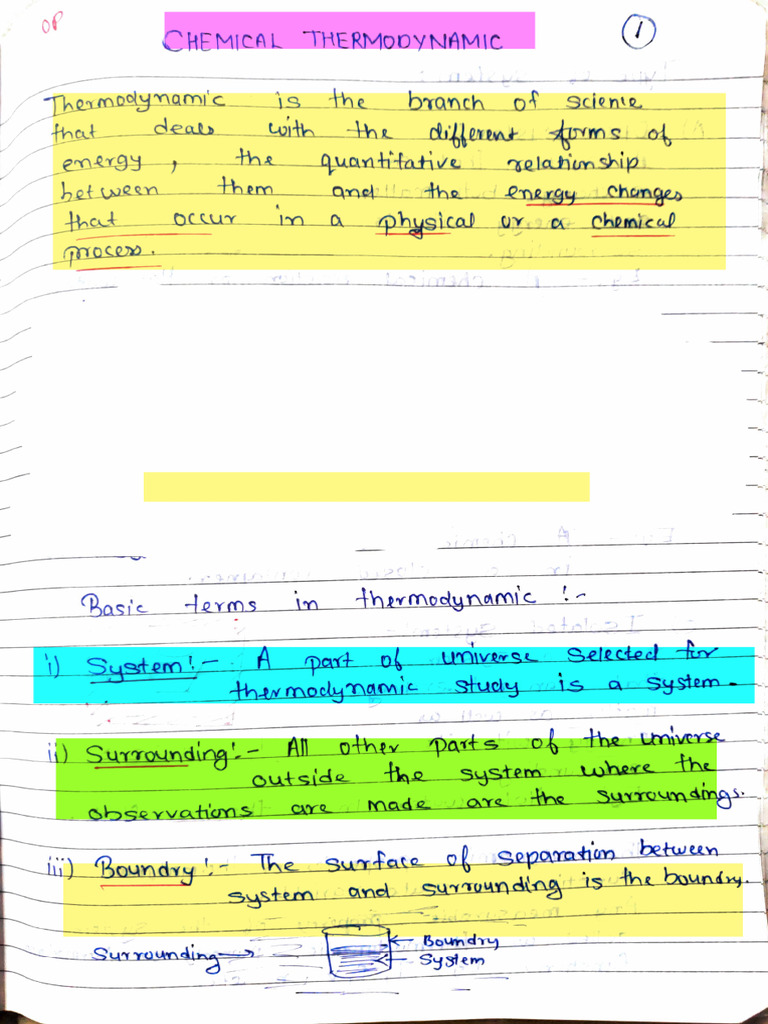 OP
CHEMICAL THERMODYNAMIC
1
Thermodynamic is the branch of science
that deals with the different forms of
energy, the quantitative relationship
between them and the energy changes
that occur in a physical or a chemical
process.
Basic terms in thermodynamic :-
i) System :- A part of universe selected for
thermodynamic study is a system.
ii) Surrounding :- All other parts of the universe
outside the system where the
observations are made are the surroundings.
iii) Boundry :- The surface of separation between
system and surrounding is the boundry.
Surrounding → ← Boundry
← System